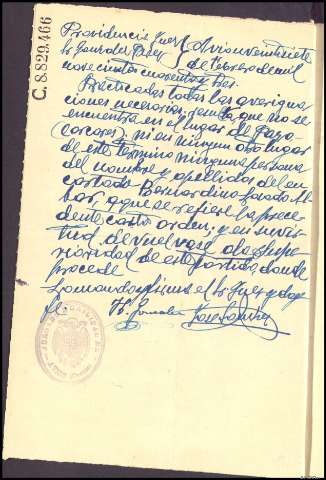 C.8.829.466
Providencia Juez
Sr. Gonzalez Perez
Avion veintisiete
de Febrero de mil
novecientos cuarenta y tres.
Practicadas todas las averigua
ciones necesarias resulta que no se
encuentra en el lugar de
ni en ningun otro lugar
de este termino ninguna persona
del nombre y apellidos del en
cartado Bernardino
a que se refiere la prece
dente carta orden, y en su vir
tud devuelvase a la Supe
rioridad de este partido donde
procede
Lo mando y firma el Sr Juez y doy
fe.